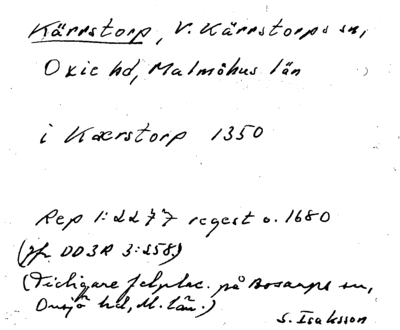 Kärrstorp, V. Kärrstorps sn,
Oxie hd, Malmöhus län
i Kærstorp 1350
Rep 1:2277 regest o. 1680
(jfr DD3R 3:258.)
(Tidigare felplac. på Bosarps sn,
Onsjö hd, M. län.)
S. Isaksson